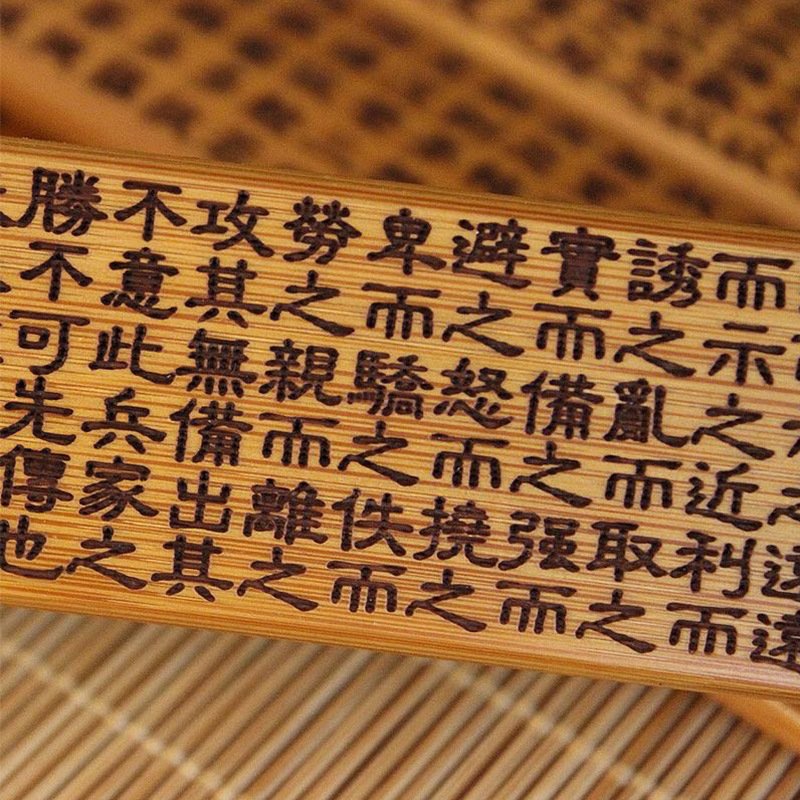 遠遠
而示之近利而
誘之亂而取之
實而備之强而
避之怒而撓之
卑而驕之佚而
勞之親而離之
攻其無備出其
不意此兵家之
勝不可先傳也